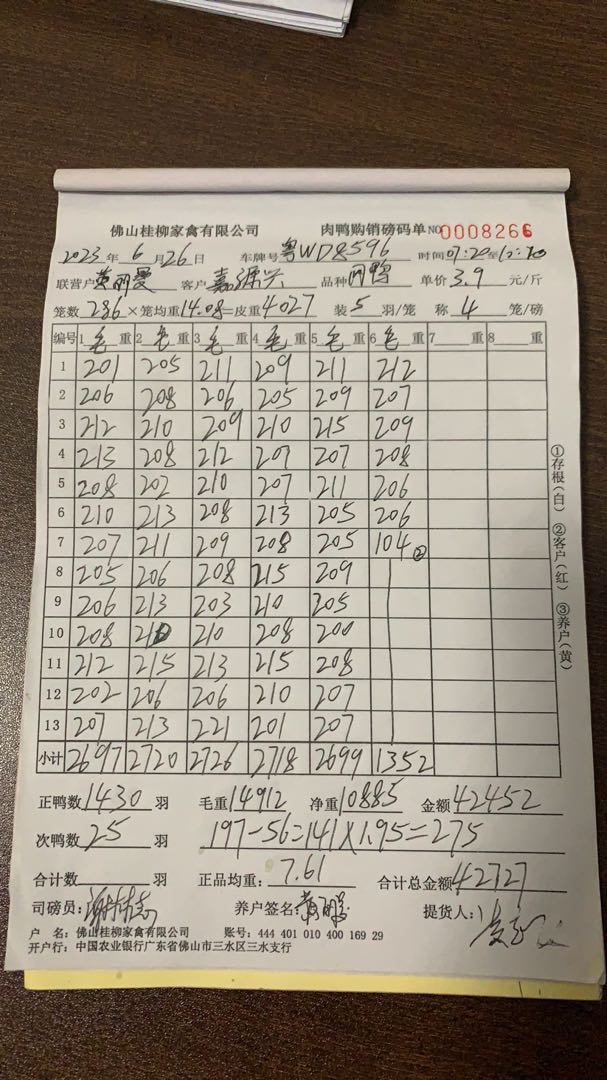 佛山桂柳家禽有限公司 肉鸭购销磅码单 NO 0008266
2023 年 6 月 26 日 车牌号 粤WD8596 时间 07:20 至
联营户 客户 嘉源兴 品种 肉鸭 单价 3.9 元/斤
笼数 286 ×笼均重 14.08 =皮重 4027 装 5 羽/笼 称 4 笼/磅
编号 1 毛 重 2 毛 重 3 毛 重 4 毛 重 5 毛 重 6 毛 重 7 重 8 重
1 201 205 211 209 211 212
2 206 208 206 205 209 207
3 212 210 209 210 215 209
4 213 208 212 207 207 208
5 208 202 210 207 211 206
6 210 213 208 213 205 206
7 207 211 209 208 205 104 ②
8 205 206 208 215 209
9 206 213 203 210 205
10 208 210 210 208 200
11 212 215 213 215 208
12 202 206 206 210 207
13 207 213 221 201 207
小计 2697 2720 2726 2718 2699 1352
①存根(白) ②客户(红) ③养户(黄)
正鸭数 1430 羽 毛重 14912 净重 10885 金额 42452
次鸭数 25 羽 197-56=141×1.95=275
合计数 羽 正品均重: 7.61 合计总金额 42727
司磅员: 养户签名: 提货人:
户 名: 佛山桂柳家禽有限公司 账号: 444 401 010 400 169 29
开户行: 中国农业银行广东省佛山市三水区三水支行